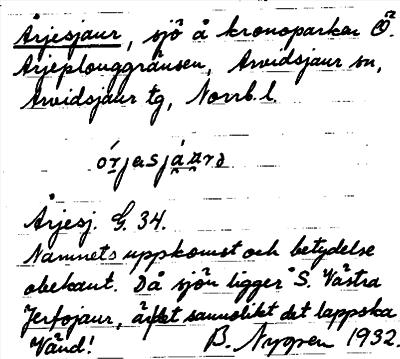 Årjesjaur, sjö å kronoparken Ö.
Arjeplouggränsen, Arvidsjaur sn,
Arvidsjaur tg, Norrb. l.
órjasjáu̯rə
Årjesj. G. 34.
Namnets uppkomst och betydelse
obekant. Då sjön ligger S. Västra
Jerfojaur, är det sannolikt det lappska
Vänd! B. Nygren 1932.